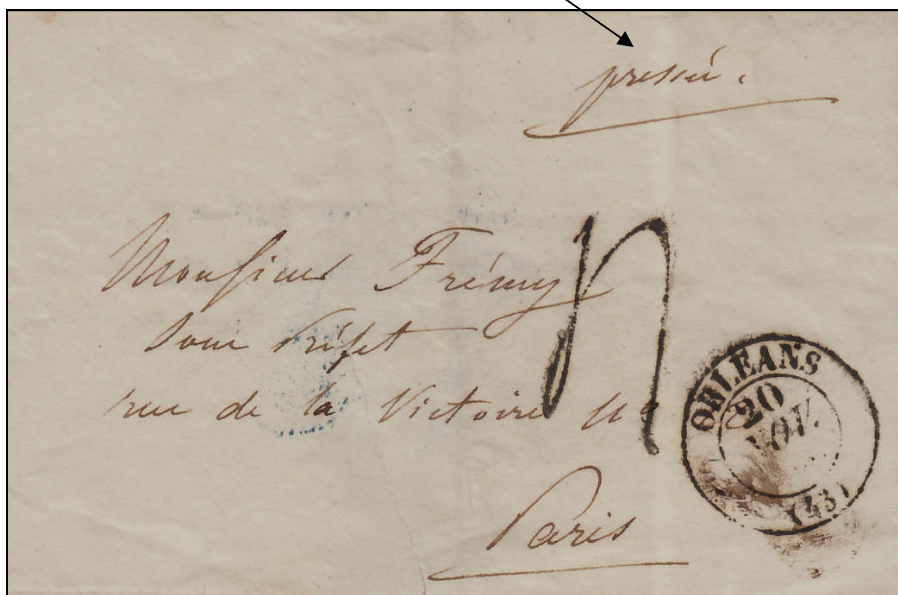 pressée.
Monsieur Frémy
Sous Préfet
rue de la Victoire n°
Paris
ORLEANS
20
NOV.
(43)